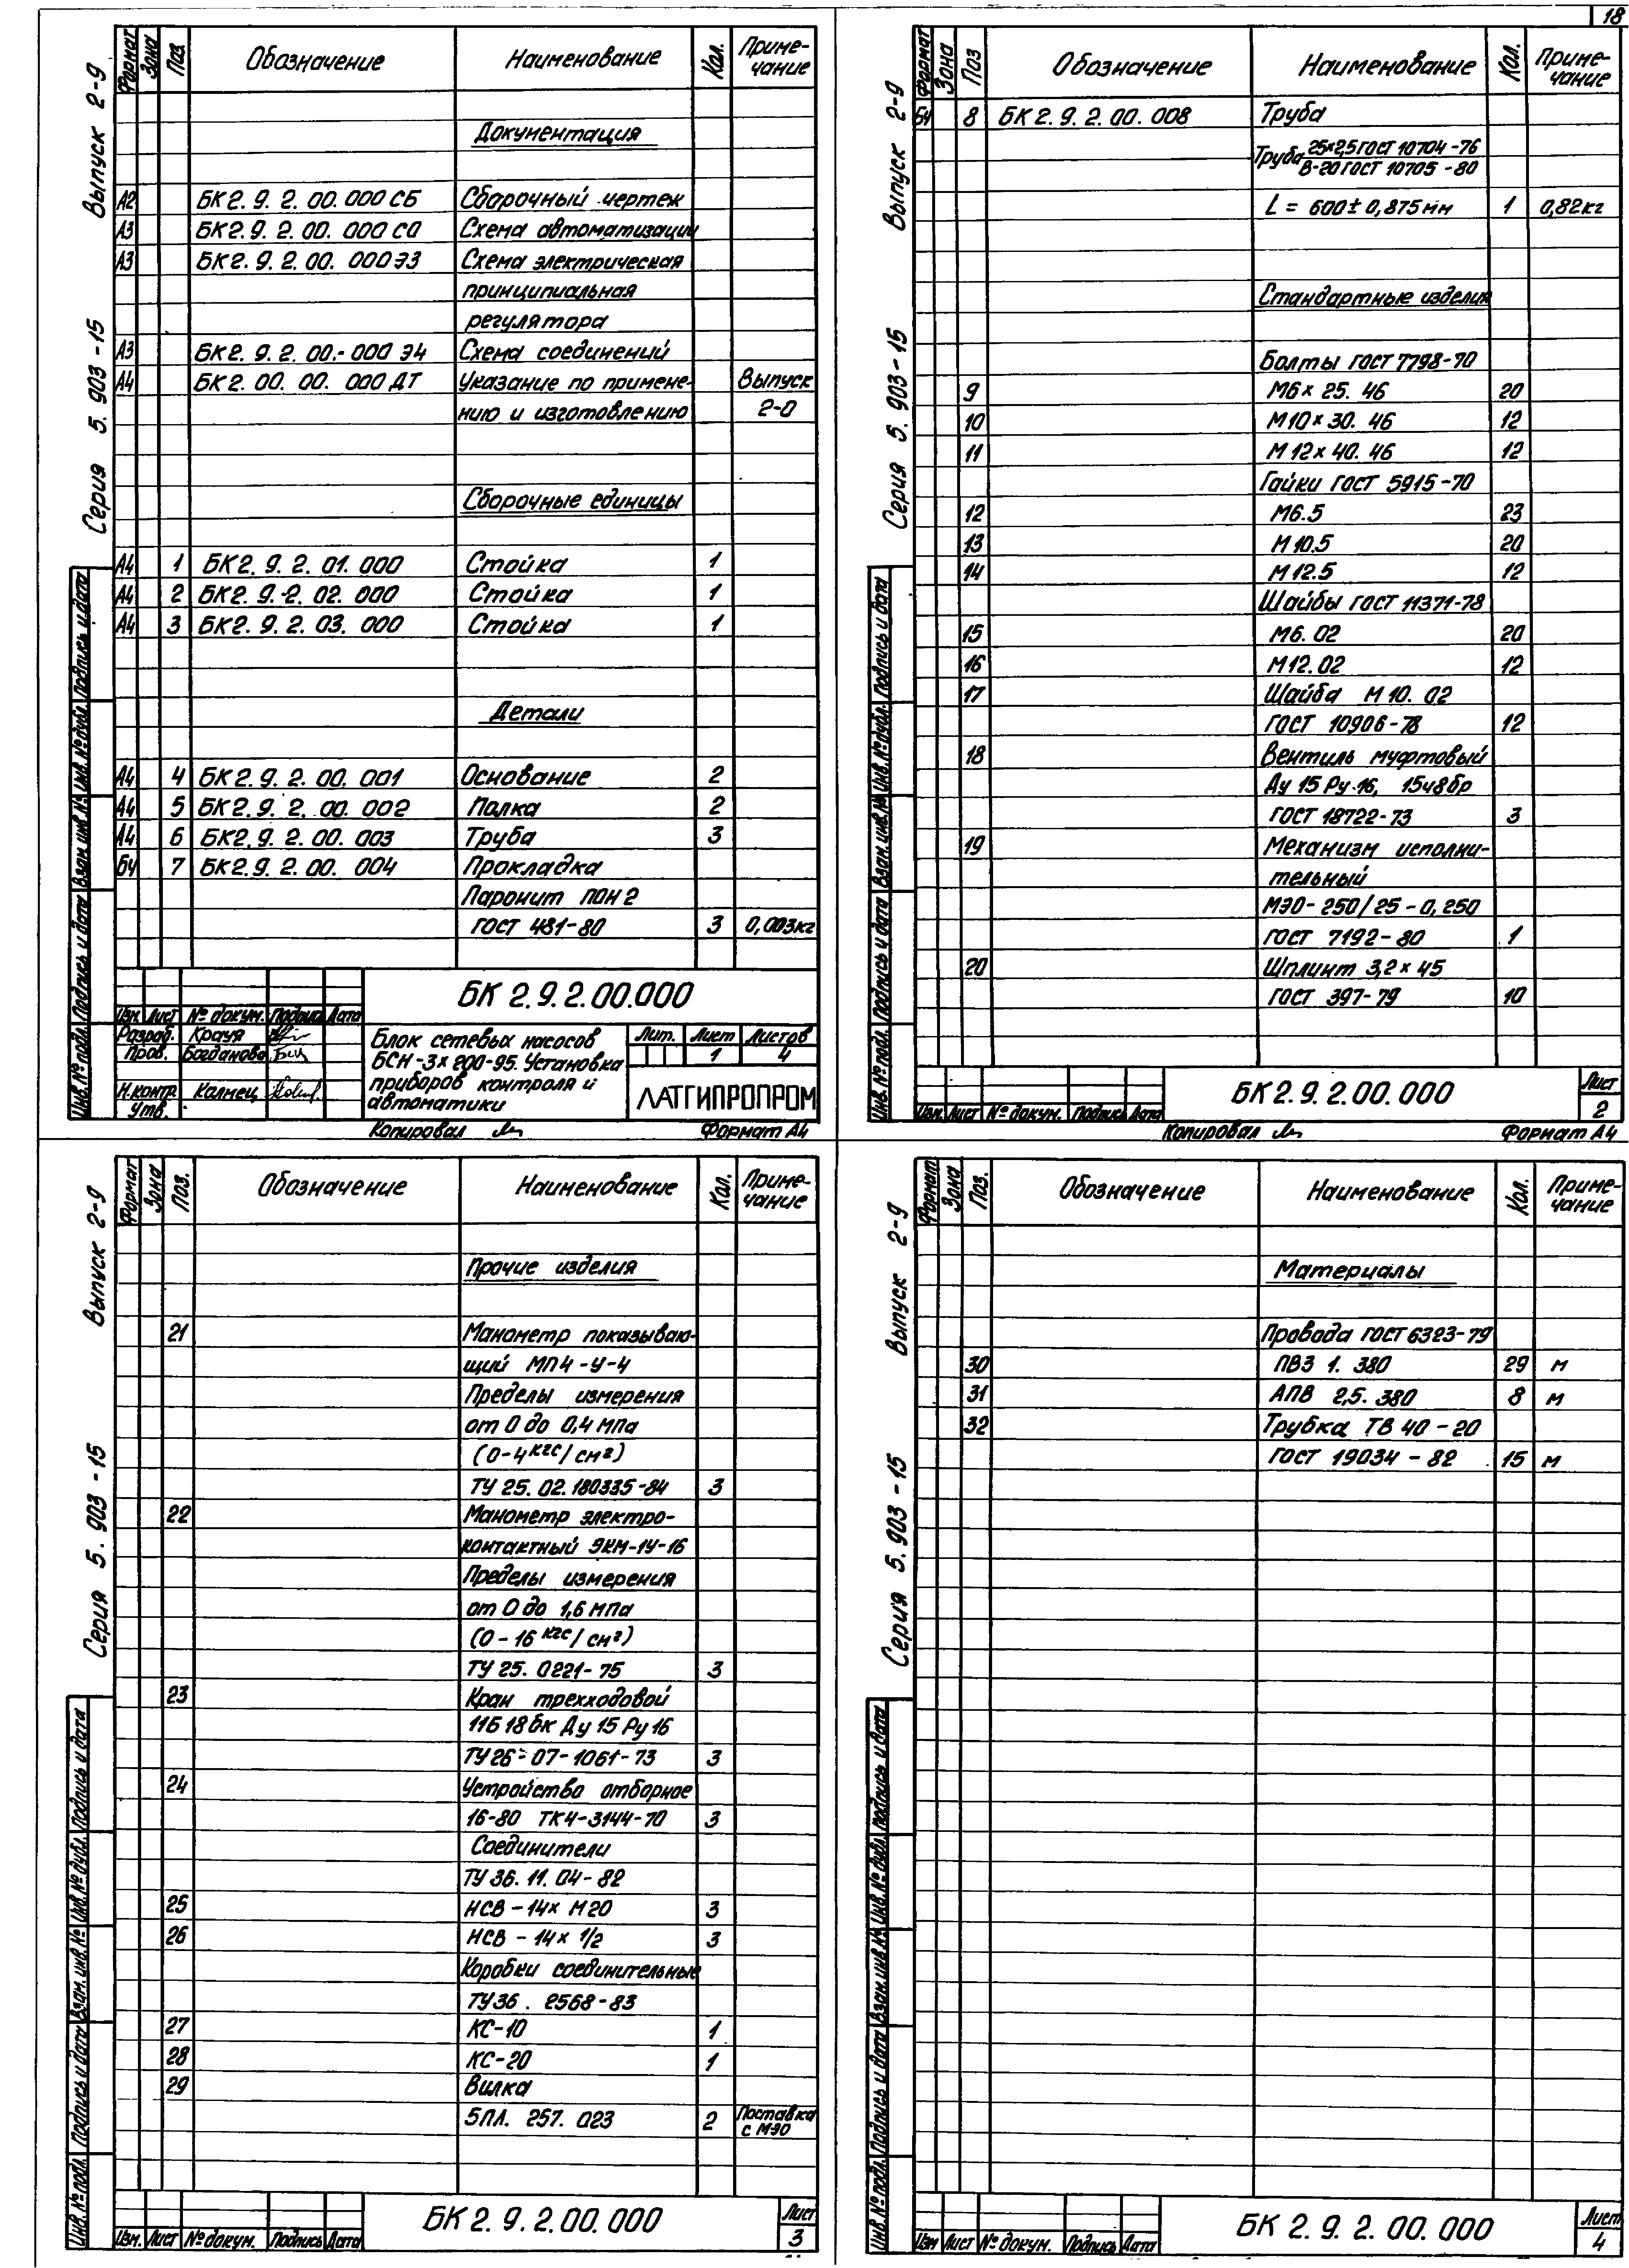 18
Серия 5.903-15 Выпуск 2-9
Формат Зона Поз. Обозначение Наименование Кол. Приме-
чание
Документация
А2 БК2.9.2.00.000 СБ Сборочный чертеж
А3 БК2.9.2.00.000 СО Схема автоматизации
А3 БК2.9.2.00.000Э3 Схема электрическая
принципиальная
регулятора
А3 БК2.9.2.00.-000 Э4 Схема соединений
А4 БК2.00.00.000 ДТ Указание по примене- Выпуск
нию и изготовлению 2-0
Сборочные единицы
А4 1 БК2.9.2.01.000 Стойка 1
А4 2 БК2.9.-2.02.000 Стойка 1
А4 3 БК2.9.2.03.000 Стойка 1
Детали
А4 4 БК2.9.2.00.001 Основание 2
А4 5 БК2.9.2.00.002 Полка 2
А4 6 БК2.9.2.00.003 Труба 3
БЧ 7 БК2.9.2.00.004 Прокладка
Паронит ПОН 2
ГОСТ 481-80 3 0,003кг
БК 2.9.2.00.000
Изм. Лист № докум. Подпись Дата
Разраб. Крауя
Пров. Богданова
Н.контр. Калмец
Утв.
Блок сетевых насосов
БСН-3х200-95. Установка
приборов контроля и
автоматики
Лит. Лист Листов
1 4
ЛАТГИПРОПРОМ
Инв. № подл. Подпись и дата Взам. инв. № Инв. № дубл. Подпись и дата
Копировал Формат А4
Серия 5.903-15 Выпуск 2-9
Формат Зона Поз Обозначение Наименование Кол. Приме-
чание
БЧ 8 БК2.9.2.00.008 Труба
Труба 25×2,5 ГОСТ 10704-76
В-20 ГОСТ 10705-80
L = 600 ± 0,875 мм 1 0,82кг
Стандартные изделия
Болты ГОСТ 7798-70
9 М6×25.46 20
10 М10×30.46 12
11 М12×40.46 12
Гайки ГОСТ 5915-70
12 М6.5 23
13 М10.5 20
14 М12.5 12
Шайбы ГОСТ 11371-78
15 М6.02 20
16 М12.02 12
17 Шайба М10.02
ГОСТ 10906-78 12
18 Вентиль муфтовый
Ду 15 Ру 16, 15ч8бр
ГОСТ 18722-73 3
19 Механизм исполни-
тельный
МЭО-250/25-0,250
ГОСТ 7192-80 1
20 Шплинт 3,2×45
ГОСТ 397-79 10
БК 2.9.2.00.000
Изм. Лист № докум. Подпись Дата
Лист
2
Инв. № подл. Подпись и дата Взам. инв. № Инв. № дубл. Подпись и дата
Копировал Формат А4
Серия 5.903-15 Выпуск 2-9
Формат Зона Поз. Обозначение Наименование Кол. Приме-
чание
Прочие изделия
21 Манометр показываю-
щий МП4-У-4
Пределы измерения
от 0 до 0,4 МПа
(0-4 кгс/см²)
ТУ 25.02.180335-84 3
22 Манометр электро-
контактный ЭКМ-1У-16
Пределы измерения
от 0 до 1,6 МПа
(0-16 кгс/см²)
ТУ 25.0221-75 3
23 Кран трехходовой
11Б18бк Ду 15 Ру 16
ТУ26-07-1061-73 3
24 Устройство отборное
16-80 ТК4-3144-70 3
Соединители
ТУ 36.11.04-82
25 НСВ-14×М20 3
26 НСВ-14×1/2 3
Коробки соединительные
ТУ36.2568-83
27 КС-10 1
28 КС-20 1
29 Вилка
5ПЛ.257.023 2 Поставка
с МЭО
БК 2.9.2.00.000
Изм. Лист № докум. Подпись Дата
Лист
3
Инв. № подл. Подпись и дата Взам. инв. № Инв. № дубл. Подпись и дата
Серия 5.903-15 Выпуск 2-9
Формат Зона Поз. Обозначение Наименование Кол. Приме-
чание
Материалы
Провода ГОСТ 6323-79
30 ПВ3 1.380 29 м
31 АПВ 2,5.380 8 м
32 Трубка ТВ 40-20
ГОСТ 19034-82 15 м
БК 2.9.2.00.000
Изм Лист № докум. Подпись Дата
Лист
4
Инв. № подл. Подпись и дата Взам. инв. № Инв. № дубл. Подпись и дата